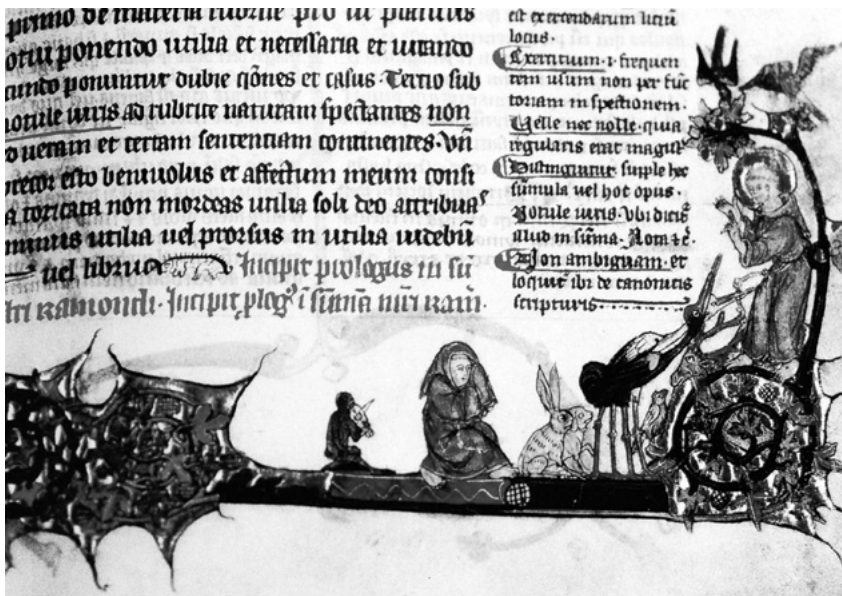 primo de materia rubrice pro ut planius
ponendo utilia et necessaria et vitando
cundo ponuntur dubie qōnes et casus. Tertio sub
notule iuris ad rubrice naturam spectantes non
veram et certam sententiam continentes. Vn̄
esto benivolus et affectum meum
non mordeas utilia soli deo
utilia vel prorsus inutilia
vel librum Incipit prologus in sū
Incipit plogꝰ ī
est exercendarum litiū
locus.
Exercitium .i. frequen
tem usum non per func
toriam inspectionem.
Velle nec nolle. quia
regularis erat magist
Distinguitur. suple hec
sūmula vel hoc opus.
Notule iuris. Ubi
illud in sūma.
Non ambiguam. et
loquit̄ ibi de canonicis
scripturis